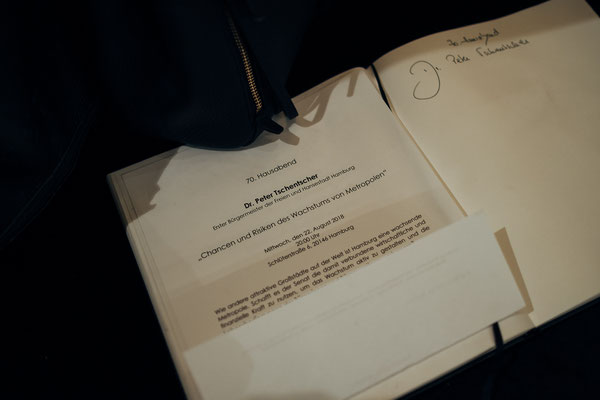 70. Hausabend
Dr. Peter Tschentscher
Erster Bürgermeister der Freien und Hansestadt Hamburg
„Chancen und Risiken des Wachstums von Metropolen"
Mittwoch, den 22. August 2018
20:00 Uhr
Schlüterstraße 6, 20146 Hamburg
Wie andere attraktive Großstädte auf der Welt ist Hamburg eine wachsende
Metropole. Schafft es der Senat die damit verbundene wirtschaftliche und
finanzielle Kraft zu nutzen, um das Wachstum aktiv zu gestalten und die
Dr. Peter Tschentscher